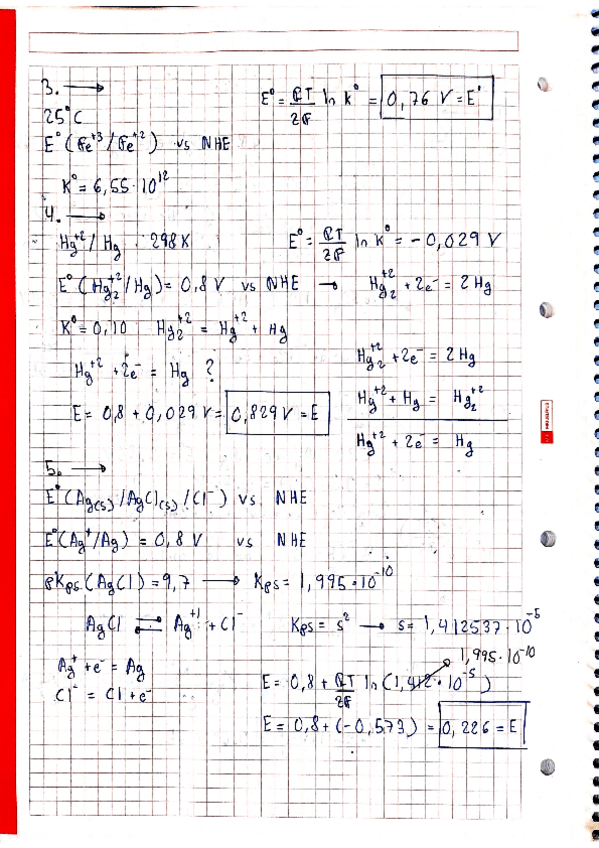 3. →
E° = RT/2F ln K° = 0,76 V = E°
25°C
E° (Fe⁺³/Fe⁺²) vs NHE
K° = 6,55 · 10¹²
4. →
Hg⁺²/Hg 298K E° = RT/2F ln K° = -0,029 V
E° (Hg₂⁺²/Hg) = 0,8 V vs NHE → Hg₂⁺² + 2e⁻ = 2Hg
K° = 0,10 Hg₂⁺² = Hg⁺² + Hg
Hg₂⁺² + 2e⁻ = 2Hg
Hg⁺² + 2e⁻ = Hg ?
Hg⁺² + Hg = Hg₂⁺²
E = 0,8 + 0,029 V = 0,829 V = E
Hg⁺² + 2e⁻ = Hg
5. →
E° (Ag(s)/AgCl(s)/Cl⁻) vs NHE
E° (Ag⁺/Ag) = 0,8 V vs NHE
pKps (AgCl) = 9,7 → Kps = 1,995 · 10⁻¹⁰
AgCl ⇌ Ag⁺¹ + Cl⁻ Kps = s² → s = 1,412537 · 10⁻⁵
1,995 · 10⁻¹⁰
Ag⁺ + e⁻ = Ag
E = 0,8 + RT/2F ln (1,412 · 10⁻⁵)
Cl⁻ = Cl + e⁻
E = 0,8 + (-0,573) = 0,226 = E